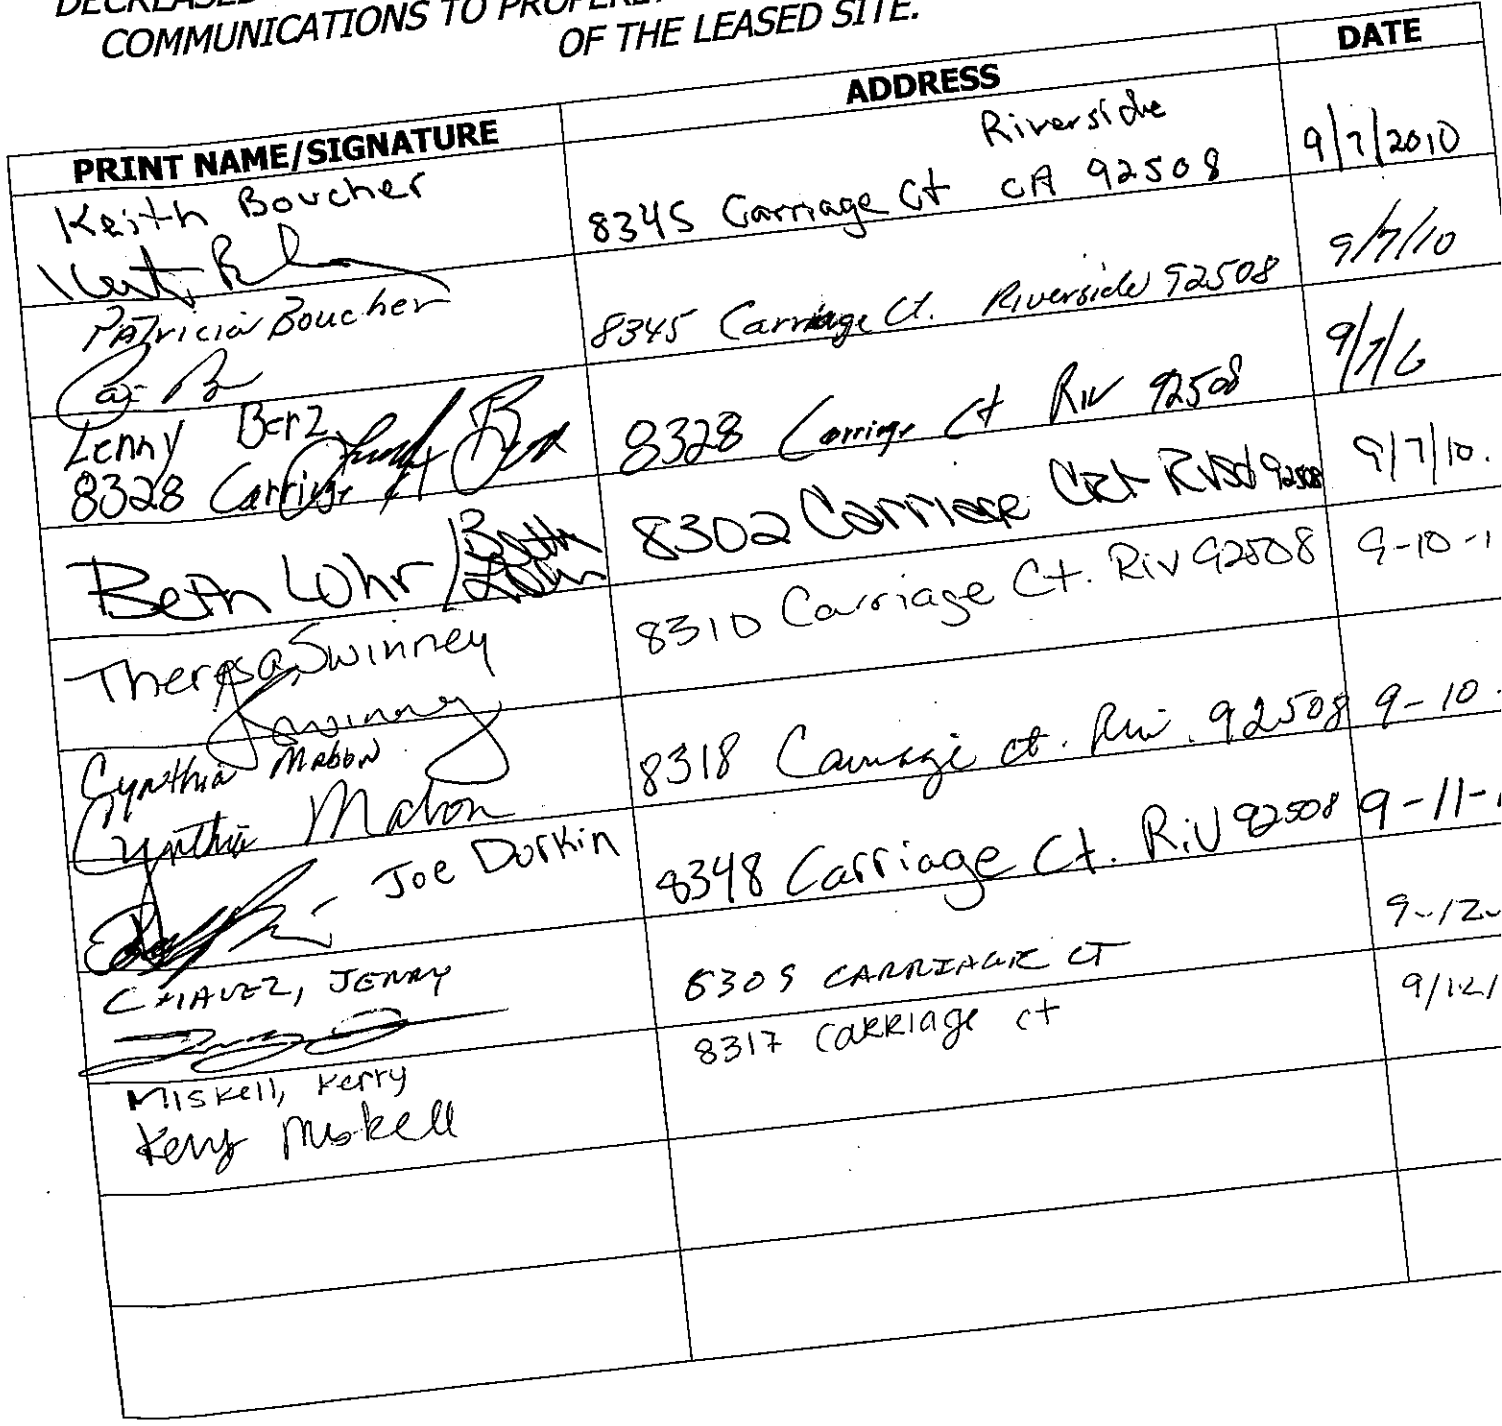 COMMUNICATIONS TO
OF THE LEASED SITE.
PRINT NAME/SIGNATURE ADDRESS DATE
Keith Boucher 8345 Carriage Ct Riverside CA 92508 9/7/2010
Patricia Boucher 8345 Carriage Ct. Riverside 92508 9/7/10
Lenny Berz 8328 Carriage Ct Riv 92508
8328 Carriage Ct
Beth Lohr / Beth 8302 Carriage Crt Rvsd 92508 9/7/10.
Theresa Swinney 8310 Carriage Ct. Riv 92508 9-10-1
Swinney
Cynthia Mabon 8318 Carriage ct. Riv. 92508 9-10
Cynthia Mabon
Joe Durkin 8348 Carriage Ct. Riv 92508 9-11-1
CHAVEZ, JERRY 8309 CARRIAGE CT 9-12-
Miskell, Kerry 8317 Carriage ct 9/12/
Kerry Miskell